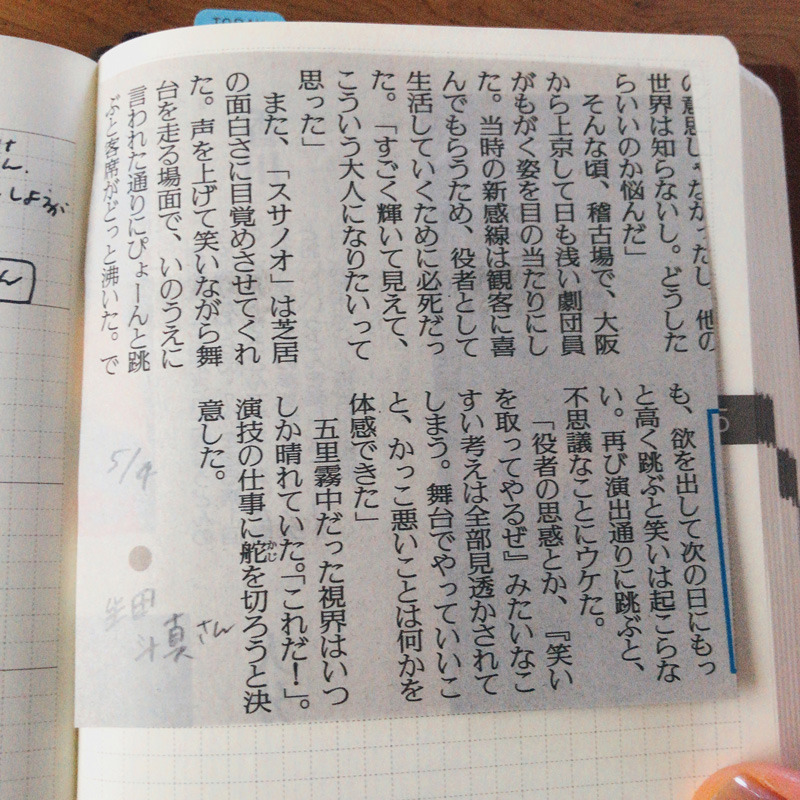 の意思しゃたかったし、他の
世界は知らないし。どうした
らいいのか悩んだ」
そんな頃、稽古場で、大阪
から上京して日も浅い劇団員
がもがく姿を目の当たりにし
た。当時の新感線は観客に喜
んでもらうため、役者として
生活していくために必死だっ
た。「すごく輝いて見えて、
こういう大人になりたいって
思った」
また、「スサノオ」は芝居
の面白さに目覚めさせてくれ
た。声を上げて笑いながら舞
台を走る場面で、いのうえに
言われた通りにぴょーんと跳
ぶと客席がどっと沸いた。で
も、欲を出して次の日にもっ
と高く跳ぶと笑いは起こらな
い。再び演出通りに跳ぶと、
不思議なことにウケた。
「役者の思惑とか、『笑い
を取ってやるぜ』みたいなこ
すい考えは全部見透かされて
しまう。舞台でやっていいこ
と、かっこ悪いことは何かを
体感できた」
五里霧中だった視界はいつ
しか晴れていた。「これだ！」。
演技の仕事に舵を切ろうと決
意した。
かじ
5/4
岩田
斗真さん
しょうが
ん
5